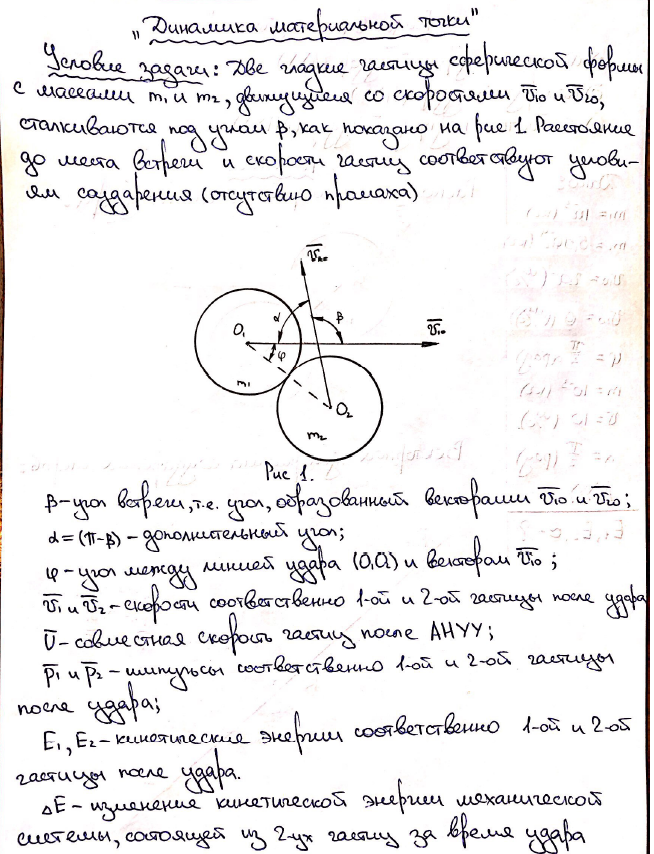 "Динамика материальной точки"
Условие задачи: Две гладкие частицы сферической формы
с массами m₁ и m₂, движущиеся со скоростями v̅₁₀ и v̅₂₀,
сталкиваются под углом β, как показано на рис 1. Расстояние
до места встречи и скорости частиц соответствуют услови-
ям соударения (отсутствию промаха)
v̅₂₀
α
β
O₁
v̅₁₀
φ
m₁
O₂
m₂
Рис 1.
β – угол встречи, т.е. угол, образованный векторами v̅₁₀ и v̅₂₀;
α = (π-β) – дополнительный угол;
φ – угол между линией удара (O₁O₂) и вектором v̅₁₀;
v̅₁ и v̅₂ – скорости соответственно 1-ой и 2-ой частицы после удара
U̅ – совместная скорость частиц после АНУУ;
p̅₁ и p̅₂ – импульсы соответственно 1-ой и 2-ой частицы
после удара;
E₁, E₂ – кинетические энергии соответственно 1-ой и 2-ой
частицы после удара.
ΔE – изменение кинетической энергии механической
системы, состоящей из 2-ух частиц за время удара